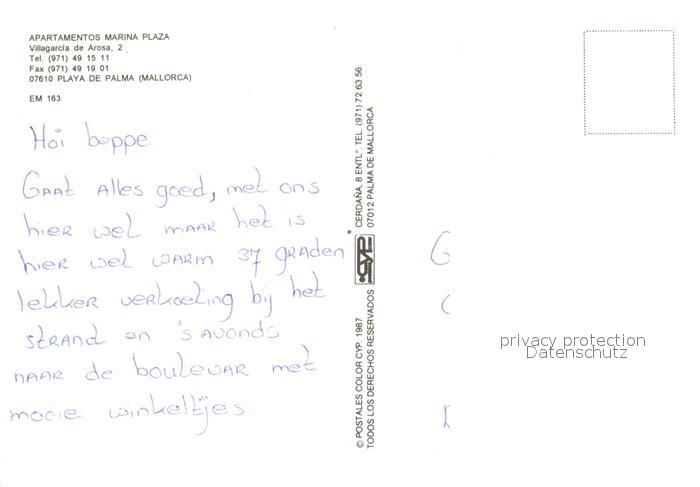 APARTAMENTOS MARINA PLAZA
Villagarcía de Arosa, 2
Tel. (971) 49 15 11
Fax (971) 49 19 01
07610 PLAYA DE PALMA (MALLORCA)
EM 163
Hoi beppe
Gaat alles goed, met ons
hier wel maar het is
hier wel warm 37 graden
lekker verkoeling bij het
strand en 's avonds
naar de boulevar met
mooie winkeltjes.
© POSTALES COLOR CYP. 1987
TODOS LOS DERECHOS RESERVADOS
CYP
CERDAÑA, 8 ENTL°. TEL. (971) 72 63 56
07012 PALMA DE MALLORCA
G
privacy protection
Datenschutz